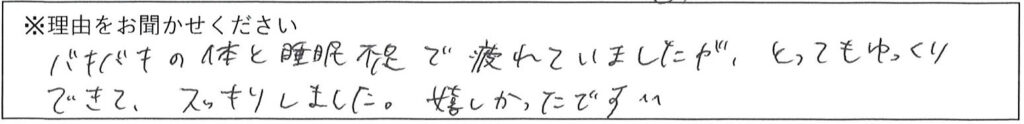 ※理由をお聞かせください
バキバキの体と睡眠不足で疲れていましたが、とってもゆっくり
できて、スッキリしました。嬉しかったです^^